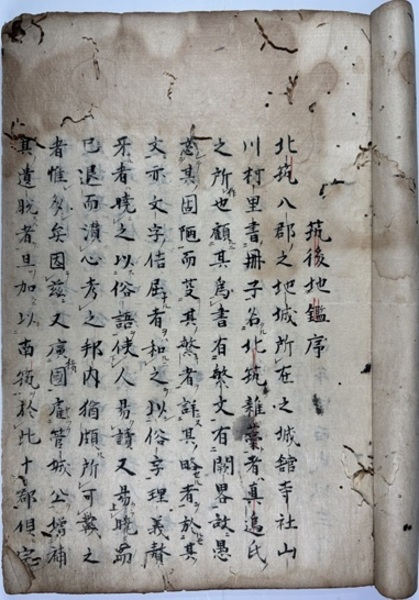 筑後地鑑序
北筑八郡之地城所在之城舘寺社山
川村里書冊子名北筑雜藁者真邉氏
之所也顧其爲書有繁文有闕畧故愚
忘其固陋而芟其繁者詳其略者於其
文亦文字佶屈者和之以俗字理義聱
牙者曉之以俗語使人易讀又易曉而
已退而潜心考之邦内猶頗所可載之
者惟多矣因茲又廣國唐管城公增補
其遺脱者且加以南筑於此十郡俱完